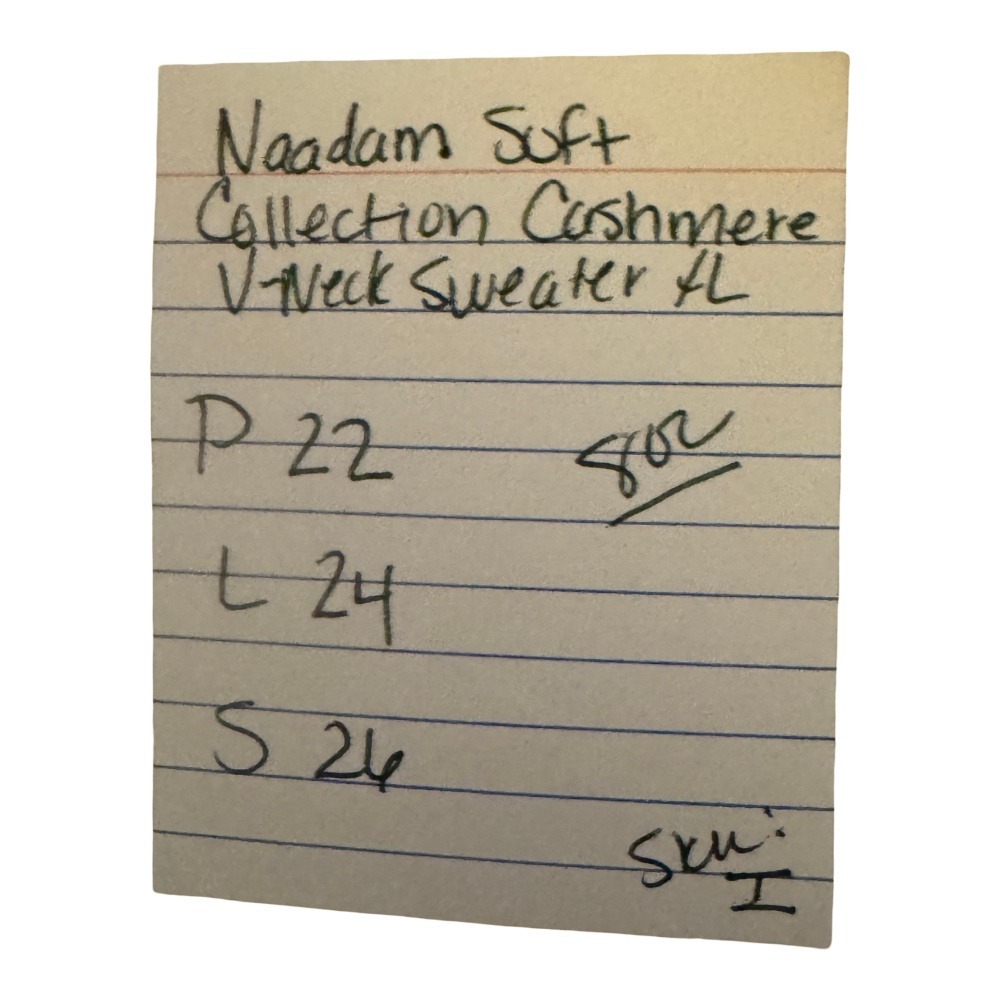 Naadam Soft
Collection Cashmere
V-Neck Sweater XL
P 22
8oz
L 24
S 26
SKU:
I